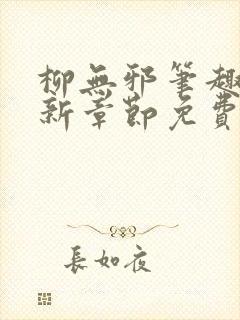 柳無邪筆趣
新章節免費
長如夜